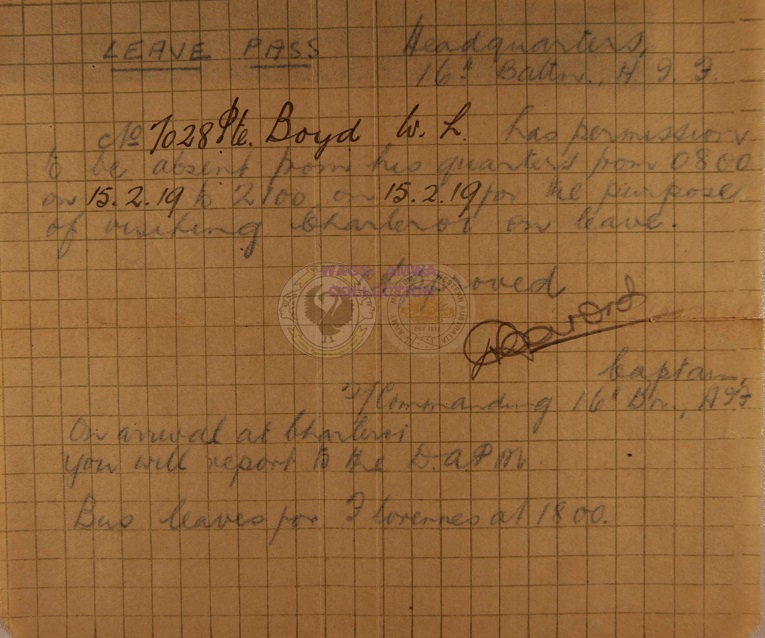 LEAVE PASS
Headquarters,
16th Battn., A I F.
No 7028 Pte. Boyd W. L. has permission
to be absent from his quarters from 0800
on 15.2.19 to 2100 on 15.2.19 for the purpose
of visiting Charleroi on leave.
WAGS ANWA
COLLECTION
Approved
Captain,
T/Commanding 16th Bn., AIF
On arrival at Charleroi
you will report to the D.A.P.M.
Bus leaves for Florennes at 1800.